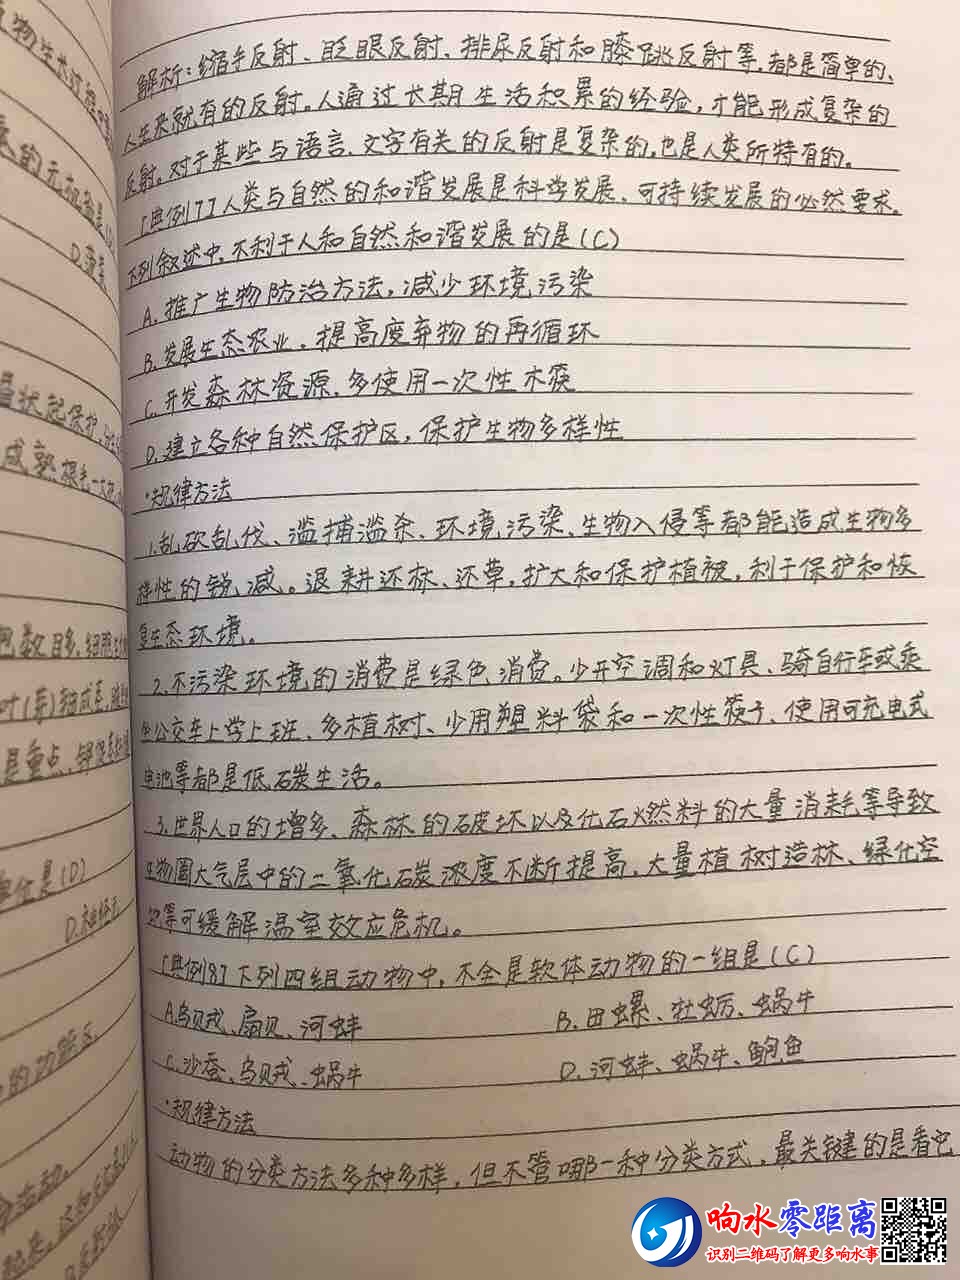 解析：缩手反射、眨眼反射、排尿反射和膝跳反射等，都是简单的、
人生来就有的反射。人通过长期生活积累的经验，才能形成复杂的
反射。对于某些与语言、文字有关的反射是复杂的，也是人类所特有的。
[典例7]人类与自然的和谐发展是科学发展、可持续发展的必然要求。
下列叙述中，不利于人和自然和谐发展的是(C)
A.推广生物防治方法，减少环境污染
B.发展生态农业，提高废弃物的再循环
C.开发森林资源，多使用一次性木筷
D.建立各种自然保护区，保护生物多样性
·规律方法
1.乱砍乱伐、滥捕滥杀、环境污染、生物入侵等都能造成生物多
样性的锐减。退耕还林、还草，扩大和保护植被，利于保护和恢
复生态环境。
2.不污染环境的消费是绿色消费。少开空调和灯具、骑自行车或乘
坐公交车上学上班、多植树、少用塑料袋和一次性筷子、使用可充电式
电池等都是低碳生活。
3.世界人口的增多、森林的破坏以及化石燃料的大量消耗等导致
生物圈大气层中的二氧化碳浓度不断提高，大量植树造林、绿化空
地等可缓解温室效应危机。
[典例8]下列四组动物中，不全是软体动物的一组是(C)
A.乌贼、扇贝、河蚌
B.田螺、牡蛎、蜗牛
C.沙蚕、乌贼、蜗牛
D.河蚌、蜗牛、鲍鱼
·规律方法
动物的分类方法多种多样，但不管哪一种分类方式，最关键的是看它
D.菠菜
是重点
是(D)
D.神经元
的功能区
响水零距离
识别二维码了解更多响水事